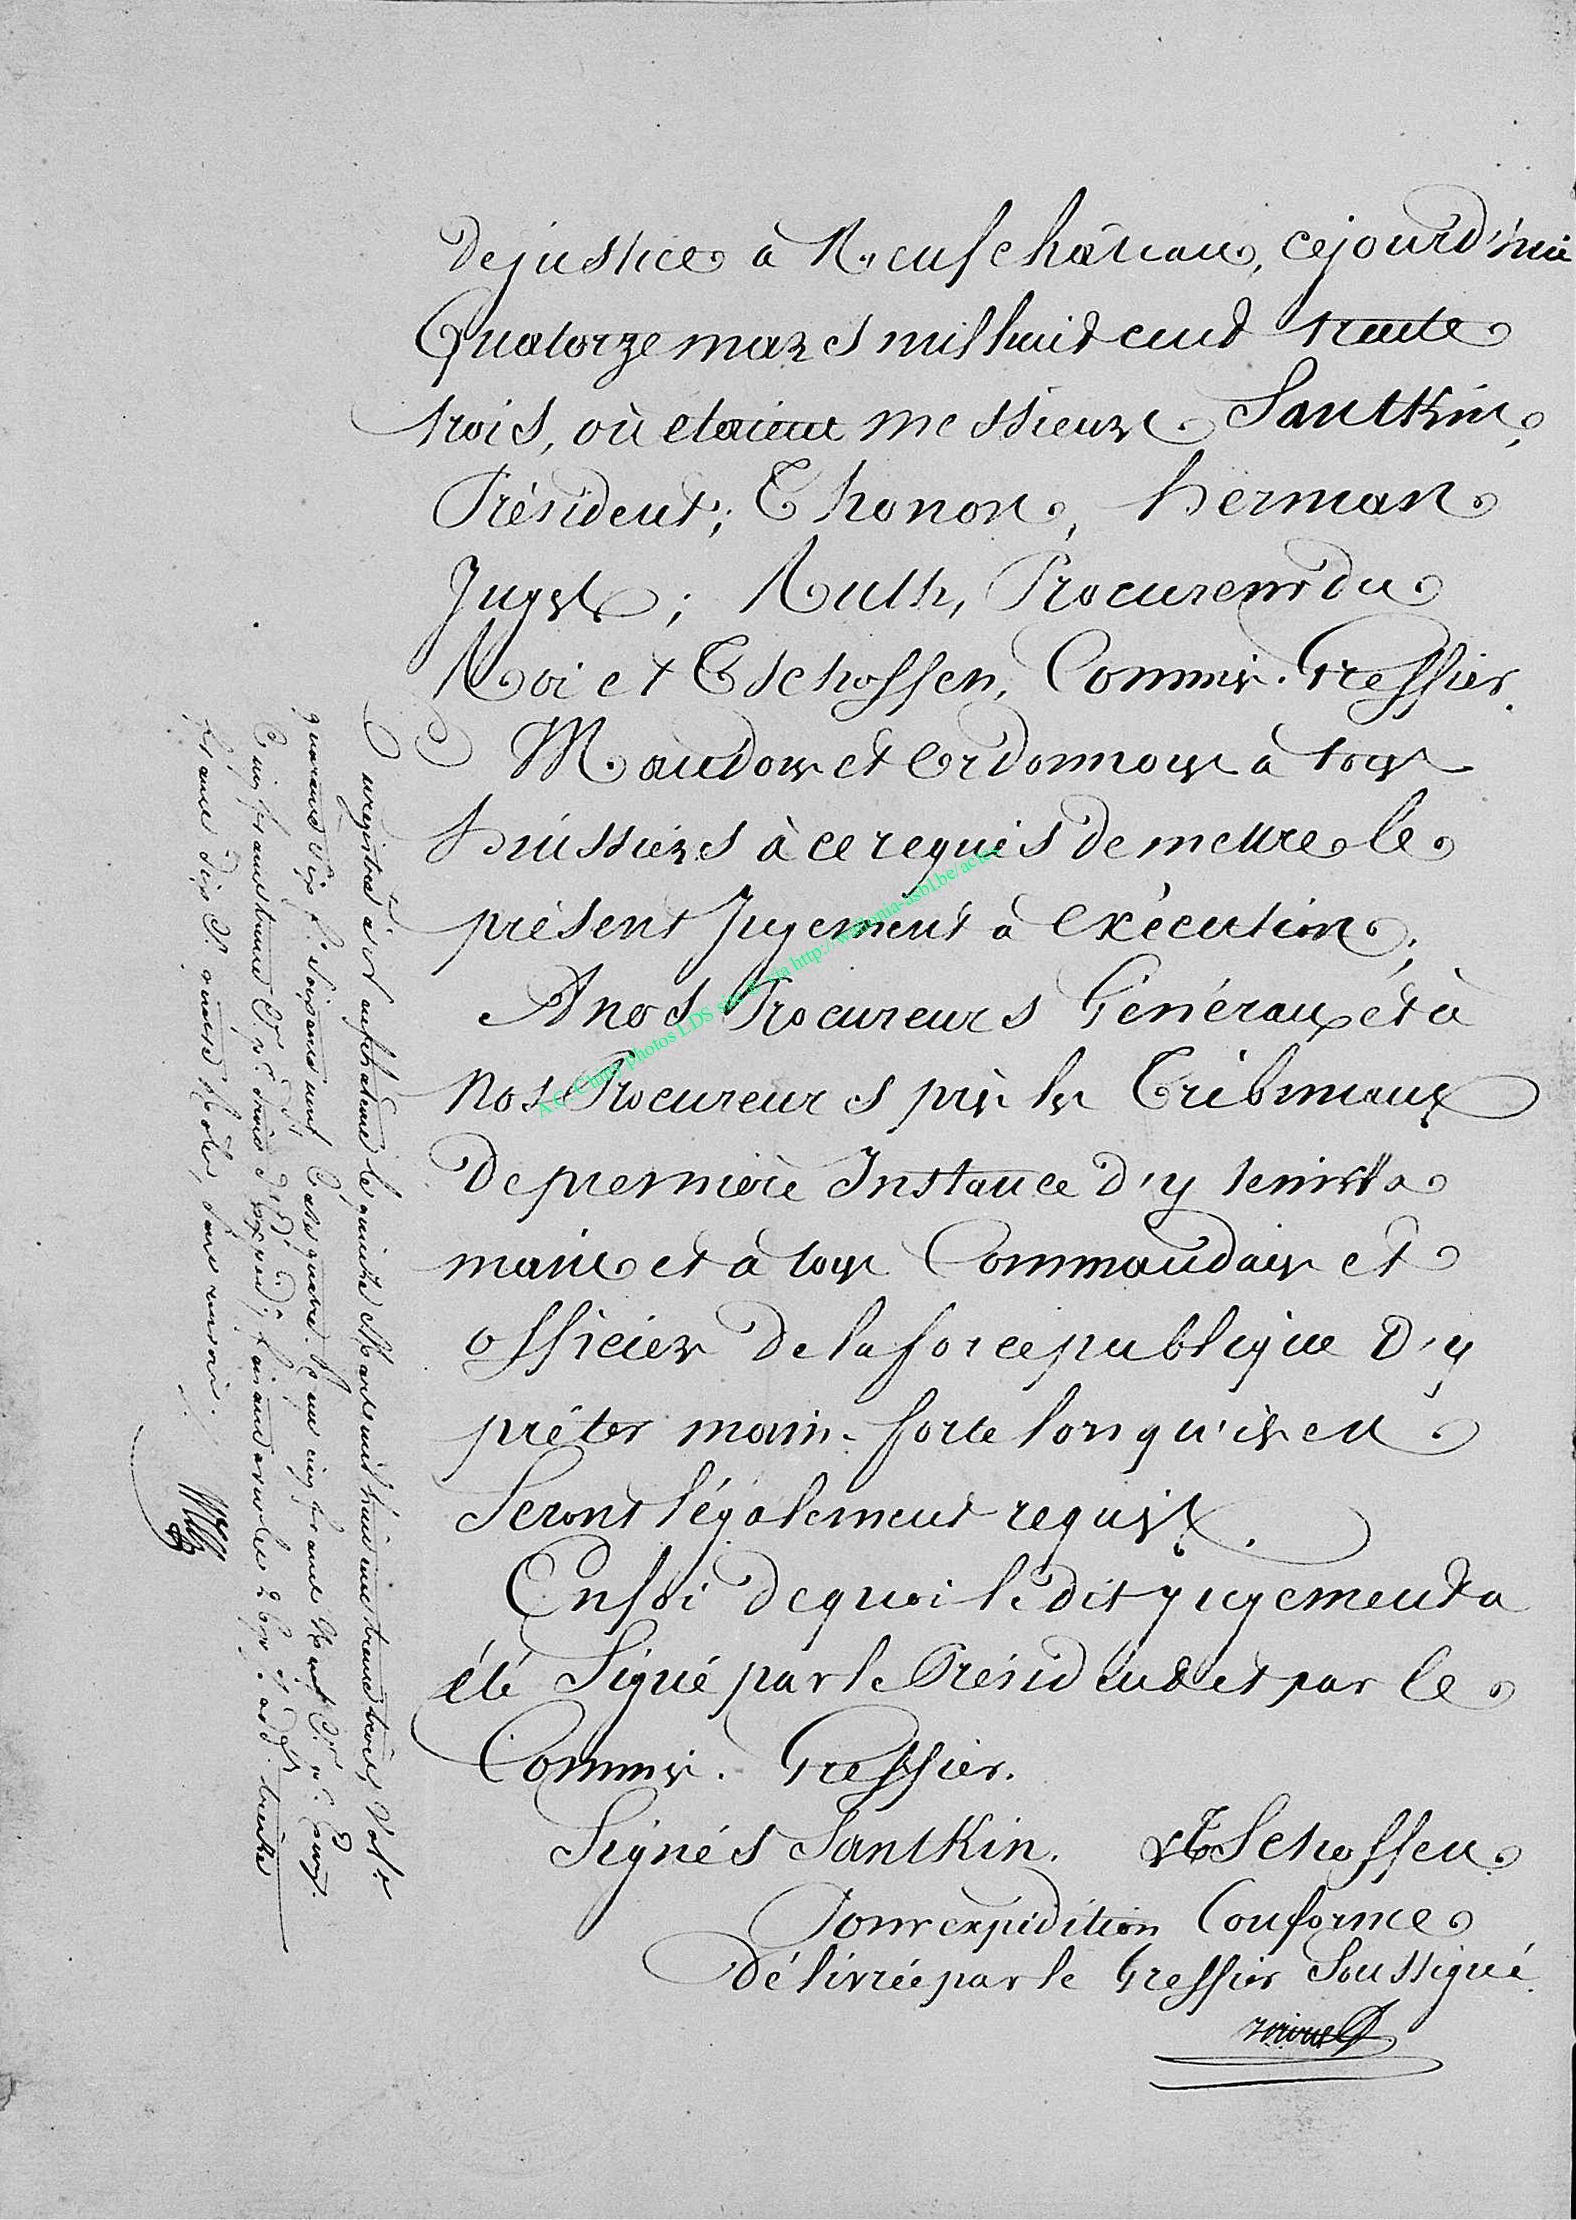 de justice à Neufchâteau, cejourd'hui
Quatorze mars mil huit cent trente
trois, où étaient messieurs Santkin,
Président; Thonon, herman
Juges; Ruth, Procureur du
Roi et Tschoffen, Commis. Greffier.
Mandons et Ordonnons à tous
huissiers à ce requis de mettre le
présent Jugement à exécution;
A nos Procureurs Généraux et à
nos Procureurs près les Tribunaux
de première Instance d'y tenir la
main et à tous Commandans et
officiers de la force publique d'y
prêter main-forte lorsqu'ils en
seront légalement requis.
En foi de quoi le dit jugement a
été Signé par le Président et par le
Commis. Greffier.
Signés Santkin. Tschoffen
Pour expédition Conforme
délivrée par le Greffier Soussigné
Enregistré à Neufchateau le quinze Mars mil huit cent trente trois, Vol.
quarante six f. soixante neuf Case quatre. Reçu cinq francs
Cinq francs trente
francs dix
A.C. Chiny photos LDS site via http://wallonia-asbl.be/actes